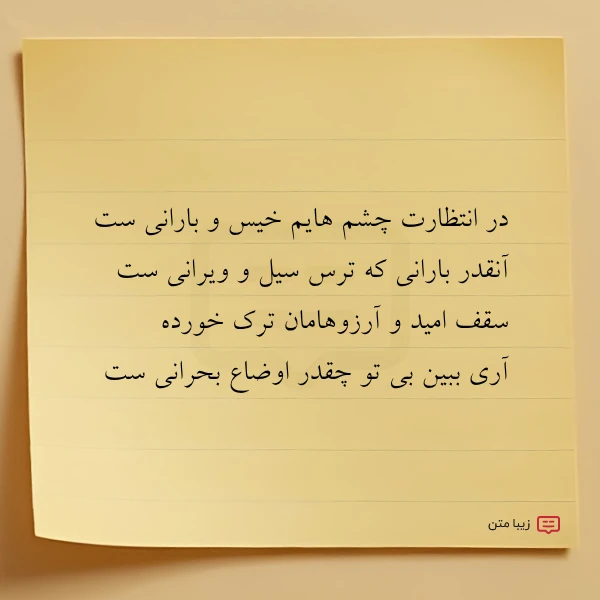 در انتظارت چشم هایم خیس و بارانی ست
آنقدر بارانی که ترس سیل و ویرانی ست
سقف امید و آرزوهامان ترک خورده
آری ببین بی تو چقدر اوضاع بحرانی ست
زیبا متن